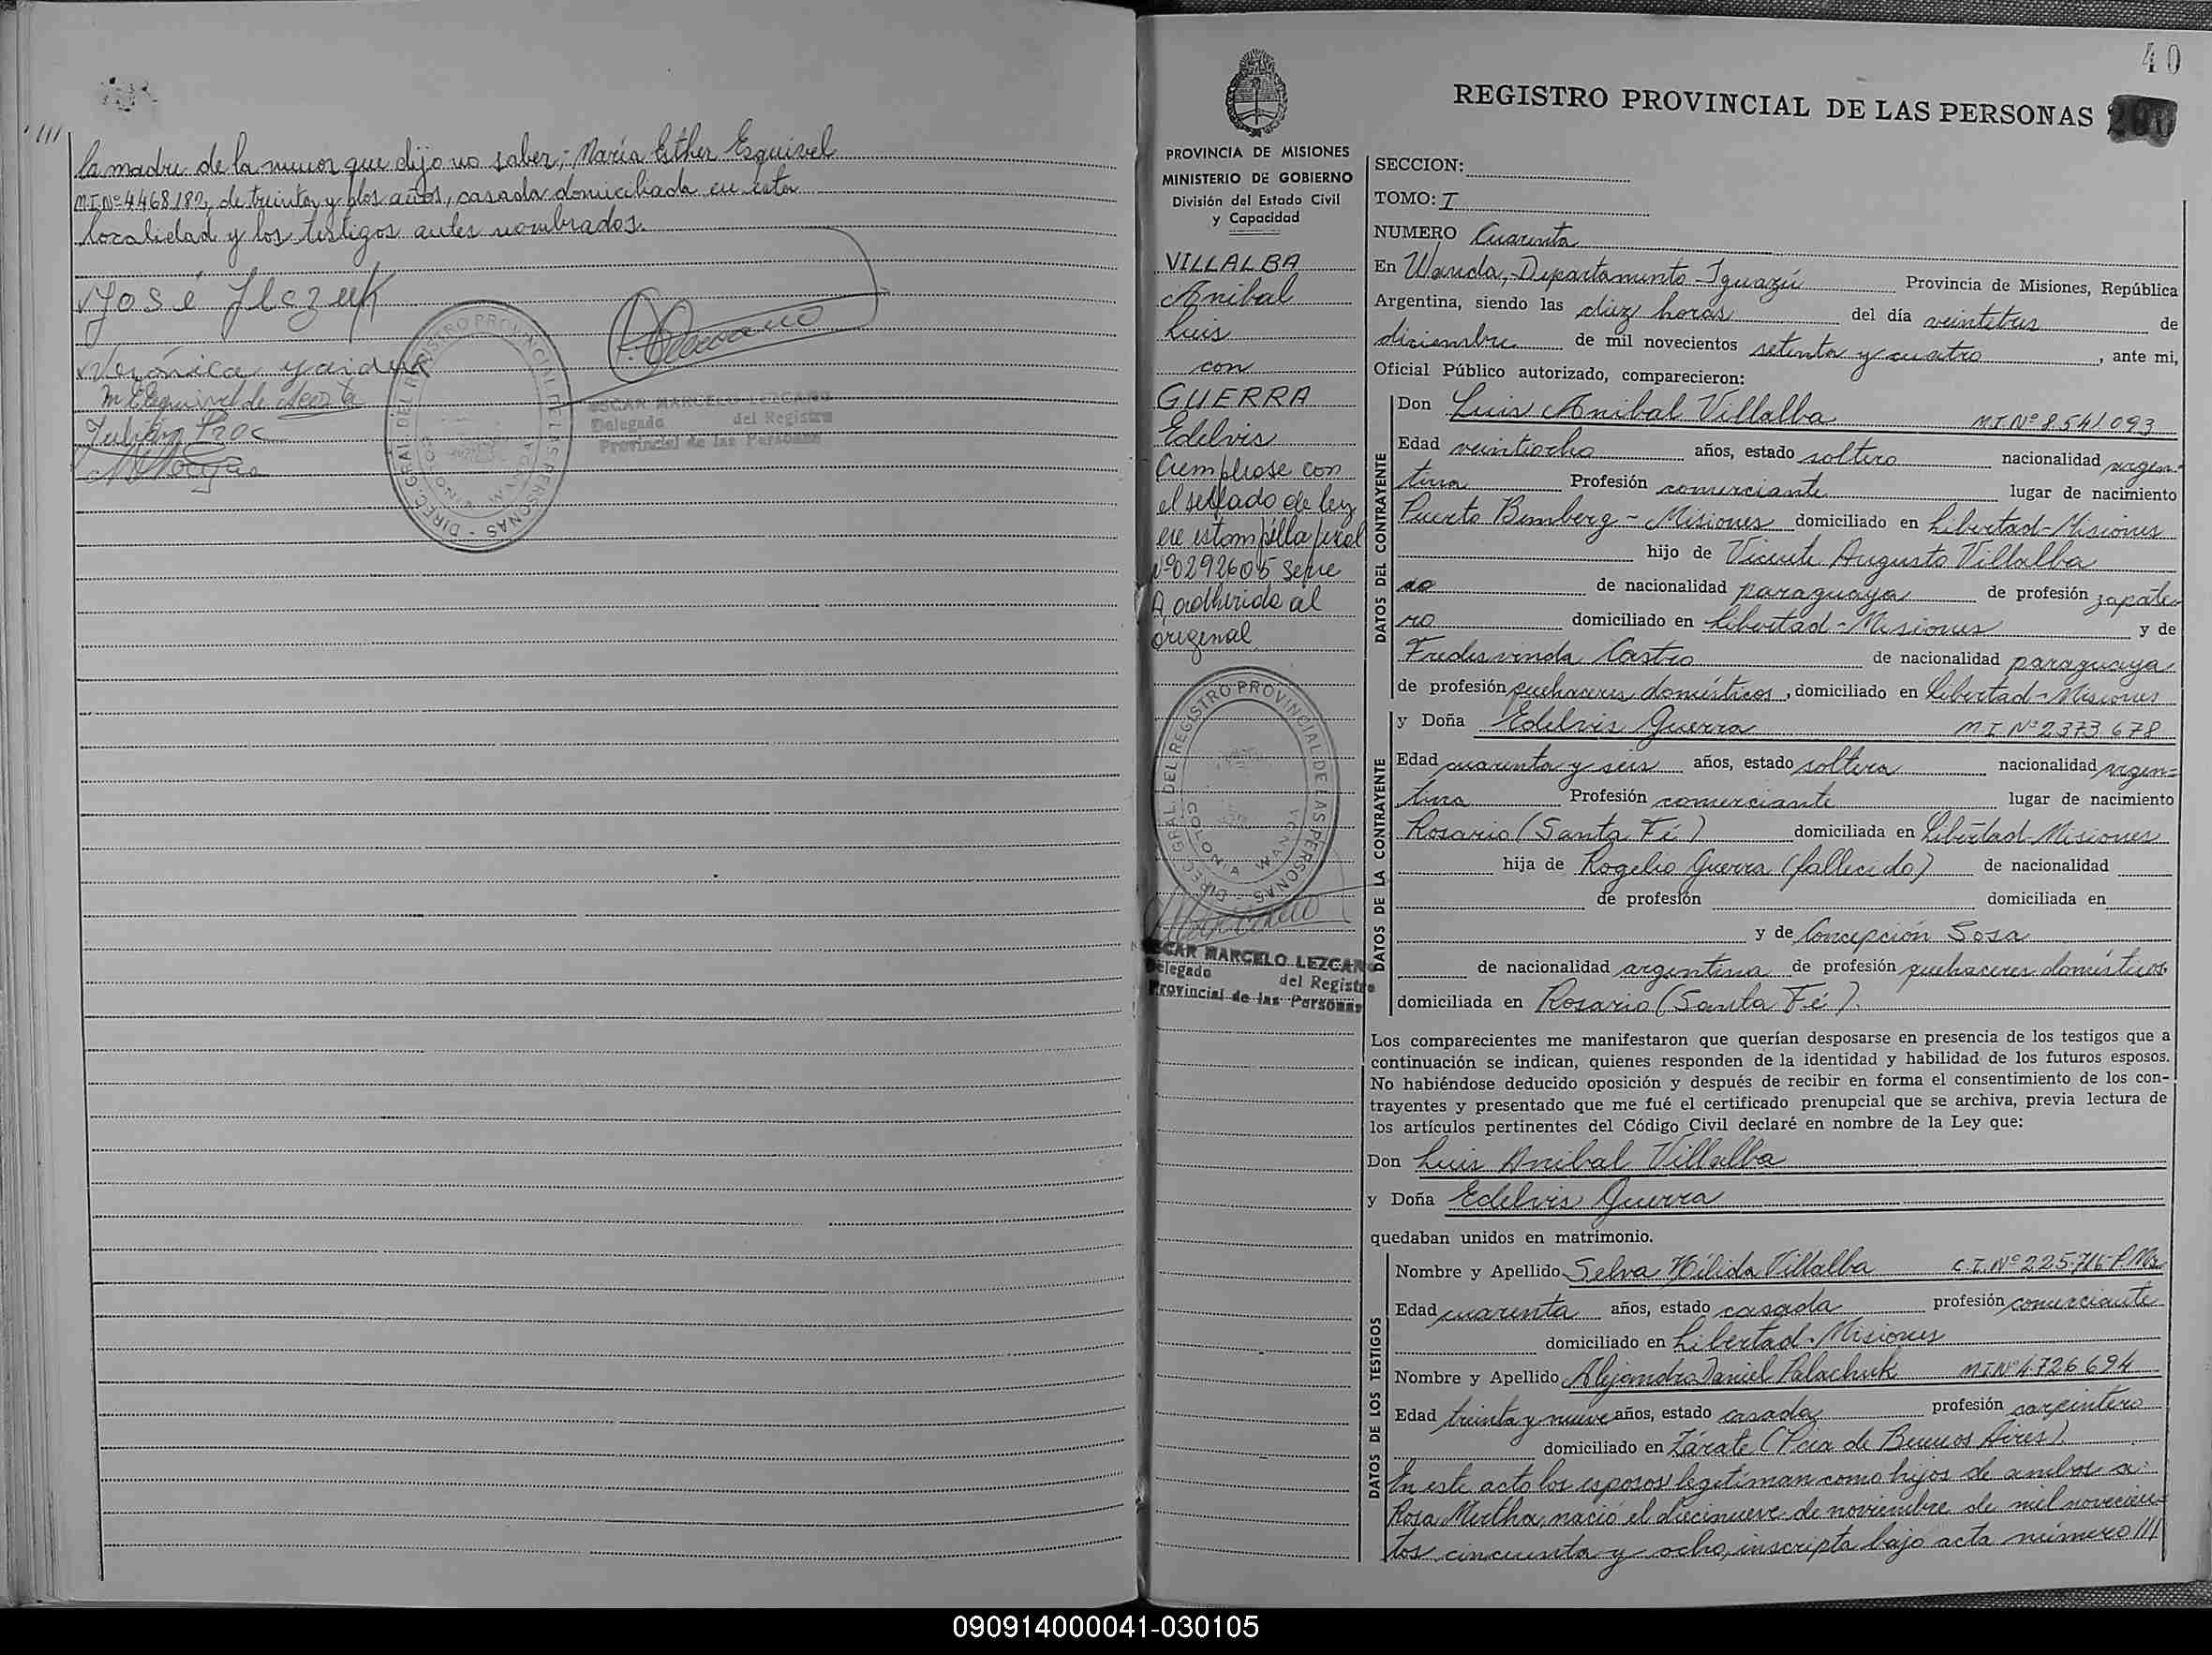 111
la madre de la menor que dijo no saber; María Esther Esquivel
M.I.Nº4468182, de treinta y dos años, casada domiciliada en esta
localidad y los testigos antes nombrados.
José
Verónica
M E Esquivel de Acosta
Julián Proc
DIREC. GRAL. DEL REGISTRO PROVINCIAL DE LAS PERSONAS - COLONIA WANDA
OSCAR MARCELO LEZCANO
Delegado del Registro
Provincial de las Personas
40
REGISTRO PROVINCIAL DE LAS PERSONAS 200
PROVINCIA DE MISIONES
MINISTERIO DE GOBIERNO
División del Estado Civil
y Capacidad
VILLALBA
Anibal
Luis
con
GUERRA
Edelvis
Cumpliose con
el sellado de ley
en estampilla fiscal
Nº0292605 serie
A adherida al
original
DIREC. GRAL. DEL REGISTRO PROVINCIAL DE LAS PERSONAS - COLONIA WANDA
OSCAR MARCELO LEZCANO
Delegado del Registro
Provincial de las Personas
SECCION:
TOMO: I
NUMERO Cuarenta
En Wanda,-Departamento Iguazú Provincia de Misiones, República
Argentina, siendo las diez horas del día veintetres de
diciembre de mil novecientos setenta y cuatro, ante mi,
Oficial Público autorizado, comparecieron:
DATOS DEL CONTRAYENTE
Don Luis Anibal Villalba M.I.Nº 8.541.093
Edad veintiocho años, estado soltero nacionalidad argen-
tina Profesión comerciante lugar de nacimiento
Puerto Bemberg - Misiones domiciliado en Libertad-Misiones
hijo de Vicente Augusto Villalba
de nacionalidad paraguaya de profesión zapate-
ro domiciliado en Libertad-Misiones y de
Fredesvinda Castro de nacionalidad paraguaya
de profesión quehaceres domésticos, domiciliado en Libertad-Misiones
DATOS DE LA CONTRAYENTE
y Doña Edelvis Guerra M.I.Nº2.373.678
Edad cuarenta y seis años, estado soltera nacionalidad argen=
tina Profesión comerciante lugar de nacimiento
Rosario (Santa Fé) domiciliada en Libertad-Misiones
hija de Rogelio Guerra (fallecido) de nacionalidad
de profesión domiciliada en
y de Concepción Sosa
de nacionalidad argentina de profesión quehaceres domésticos
domiciliada en Rosario (Santa Fé).
Los comparecientes me manifestaron que querían desposarse en presencia de los testigos que a
continuación se indican, quienes responden de la identidad y habilidad de los futuros esposos.
No habiéndose deducido oposición y después de recibir en forma el consentimiento de los con-
trayentes y presentado que me fué el certificado prenupcial que se archiva, previa lectura de
los artículos pertinentes del Código Civil declaré en nombre de la Ley que:
Don Luis Anibal Villalba
y Doña Edelvis Guerra
quedaban unidos en matrimonio.
DATOS DE LOS TESTIGOS
Nombre y Apellido Selva Nélida Villalba C.I.Nº225.716-P.Mis
Edad cuarenta años, estado casada profesión comerciante
domiciliado en Libertad-Misiones
Nombre y Apellido Alejandro Daniel Palachuk M.I.Nº4.726.694
Edad treinta y nueve años, estado casado profesión carpintero
domiciliado en Zárate (Pcia de Buenos Aires).
En este acto los esposos legitiman como hijos de ambos a:
Rosa Mirtha, nació el diecinueve de noviembre de mil novecien=
tos cincuenta y ocho, inscripta bajo acta número 111
090914000041-030105